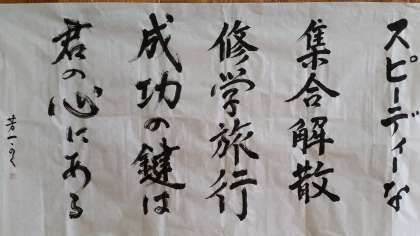 スピーディーな
集合解散
修学旅行
成功の鍵は
君の心にある